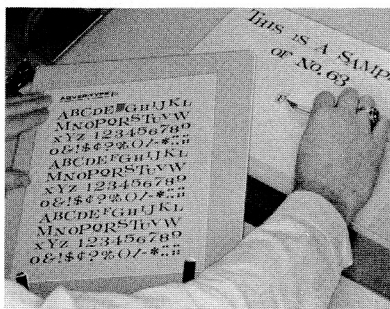 ADVERTYPE
ABCDE GHIJKL
MNOPQRSTUVW
XYZ 1234567890
0&!$¢?%()/-*:;!!
ABCDEFGHIJKL
MNOPQRSTUVW
XYZ 1234567890
0&!$¢?%()/-*:;!!
ABCDEFGHIJKL
MNOPQRSTUVW
XYZ 1234567890
0&!$¢?%()/-*:;!!
THIS IS A SAMP
OF NO. 63
F